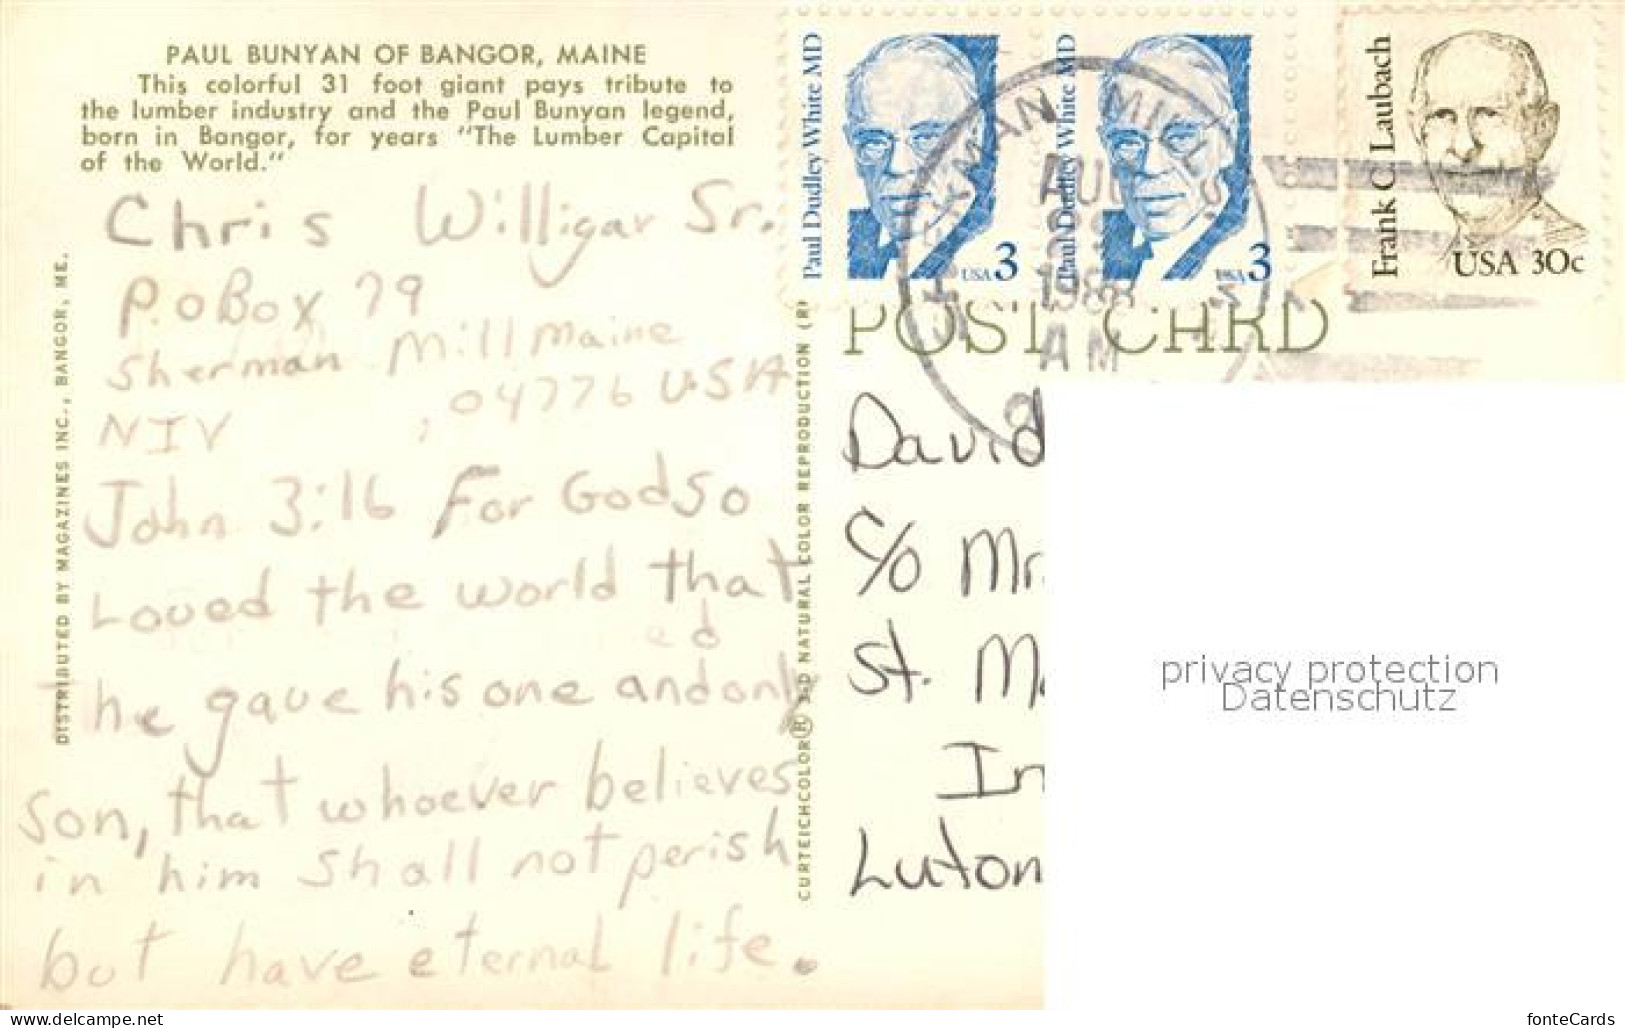 PAUL BUNYAN OF BANGOR, MAINE
This colorful 31 foot giant pays tribute to
the lumber industry and the Paul Bunyan legend,
born in Bangor, for years "The Lumber Capital
of the World."
Chris Willigar Sr.
P.O Box 79
Sherman Mill Maine
, 04776 USA
NIV
John 3:16 For God so
Loved the world that
ed
he gave his one and only
son, that whoever believes
in him shall not perish
but have eternal life.
DISTRIBUTED BY MAGAZINES INC., BANGOR, ME.
CURTEICHCOLOR® 3-D NATURAL COLOR REPRODUCTION (R
Paul Dudley White MD
USA 3
Paul Dudley White MD
USA 3
Frank C. Laubach
USA 30c
AUG
1988
AM
POST CARD
David
c/o Mr.
St. M
In
Luton
privacy protection
Datenschutz
www.delcampe.net
fonteCards